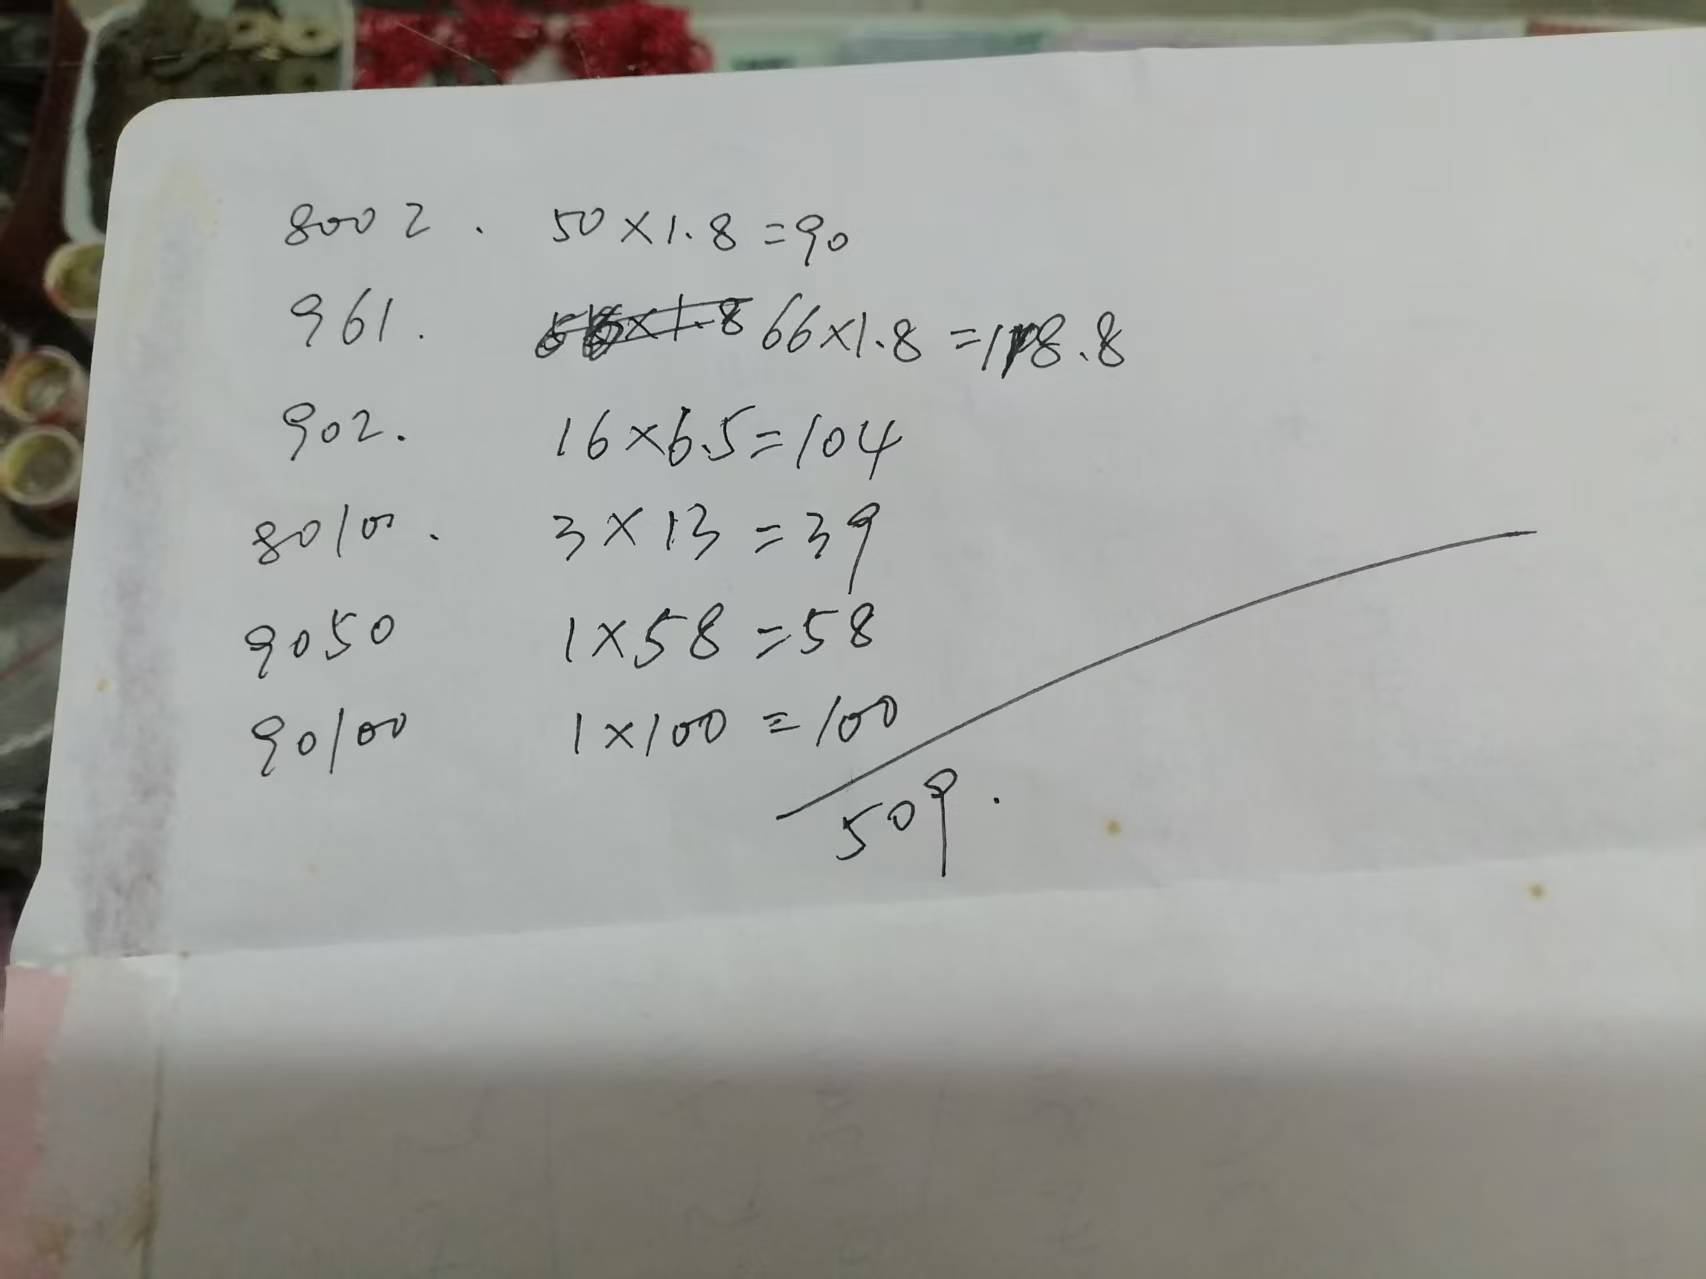 8002. 50×1.8=90
961. 66×1.8=118.8
902. 16×6.5=104
80100. 3×13=39
9050 1×58=58
90100 1×100=100
509.